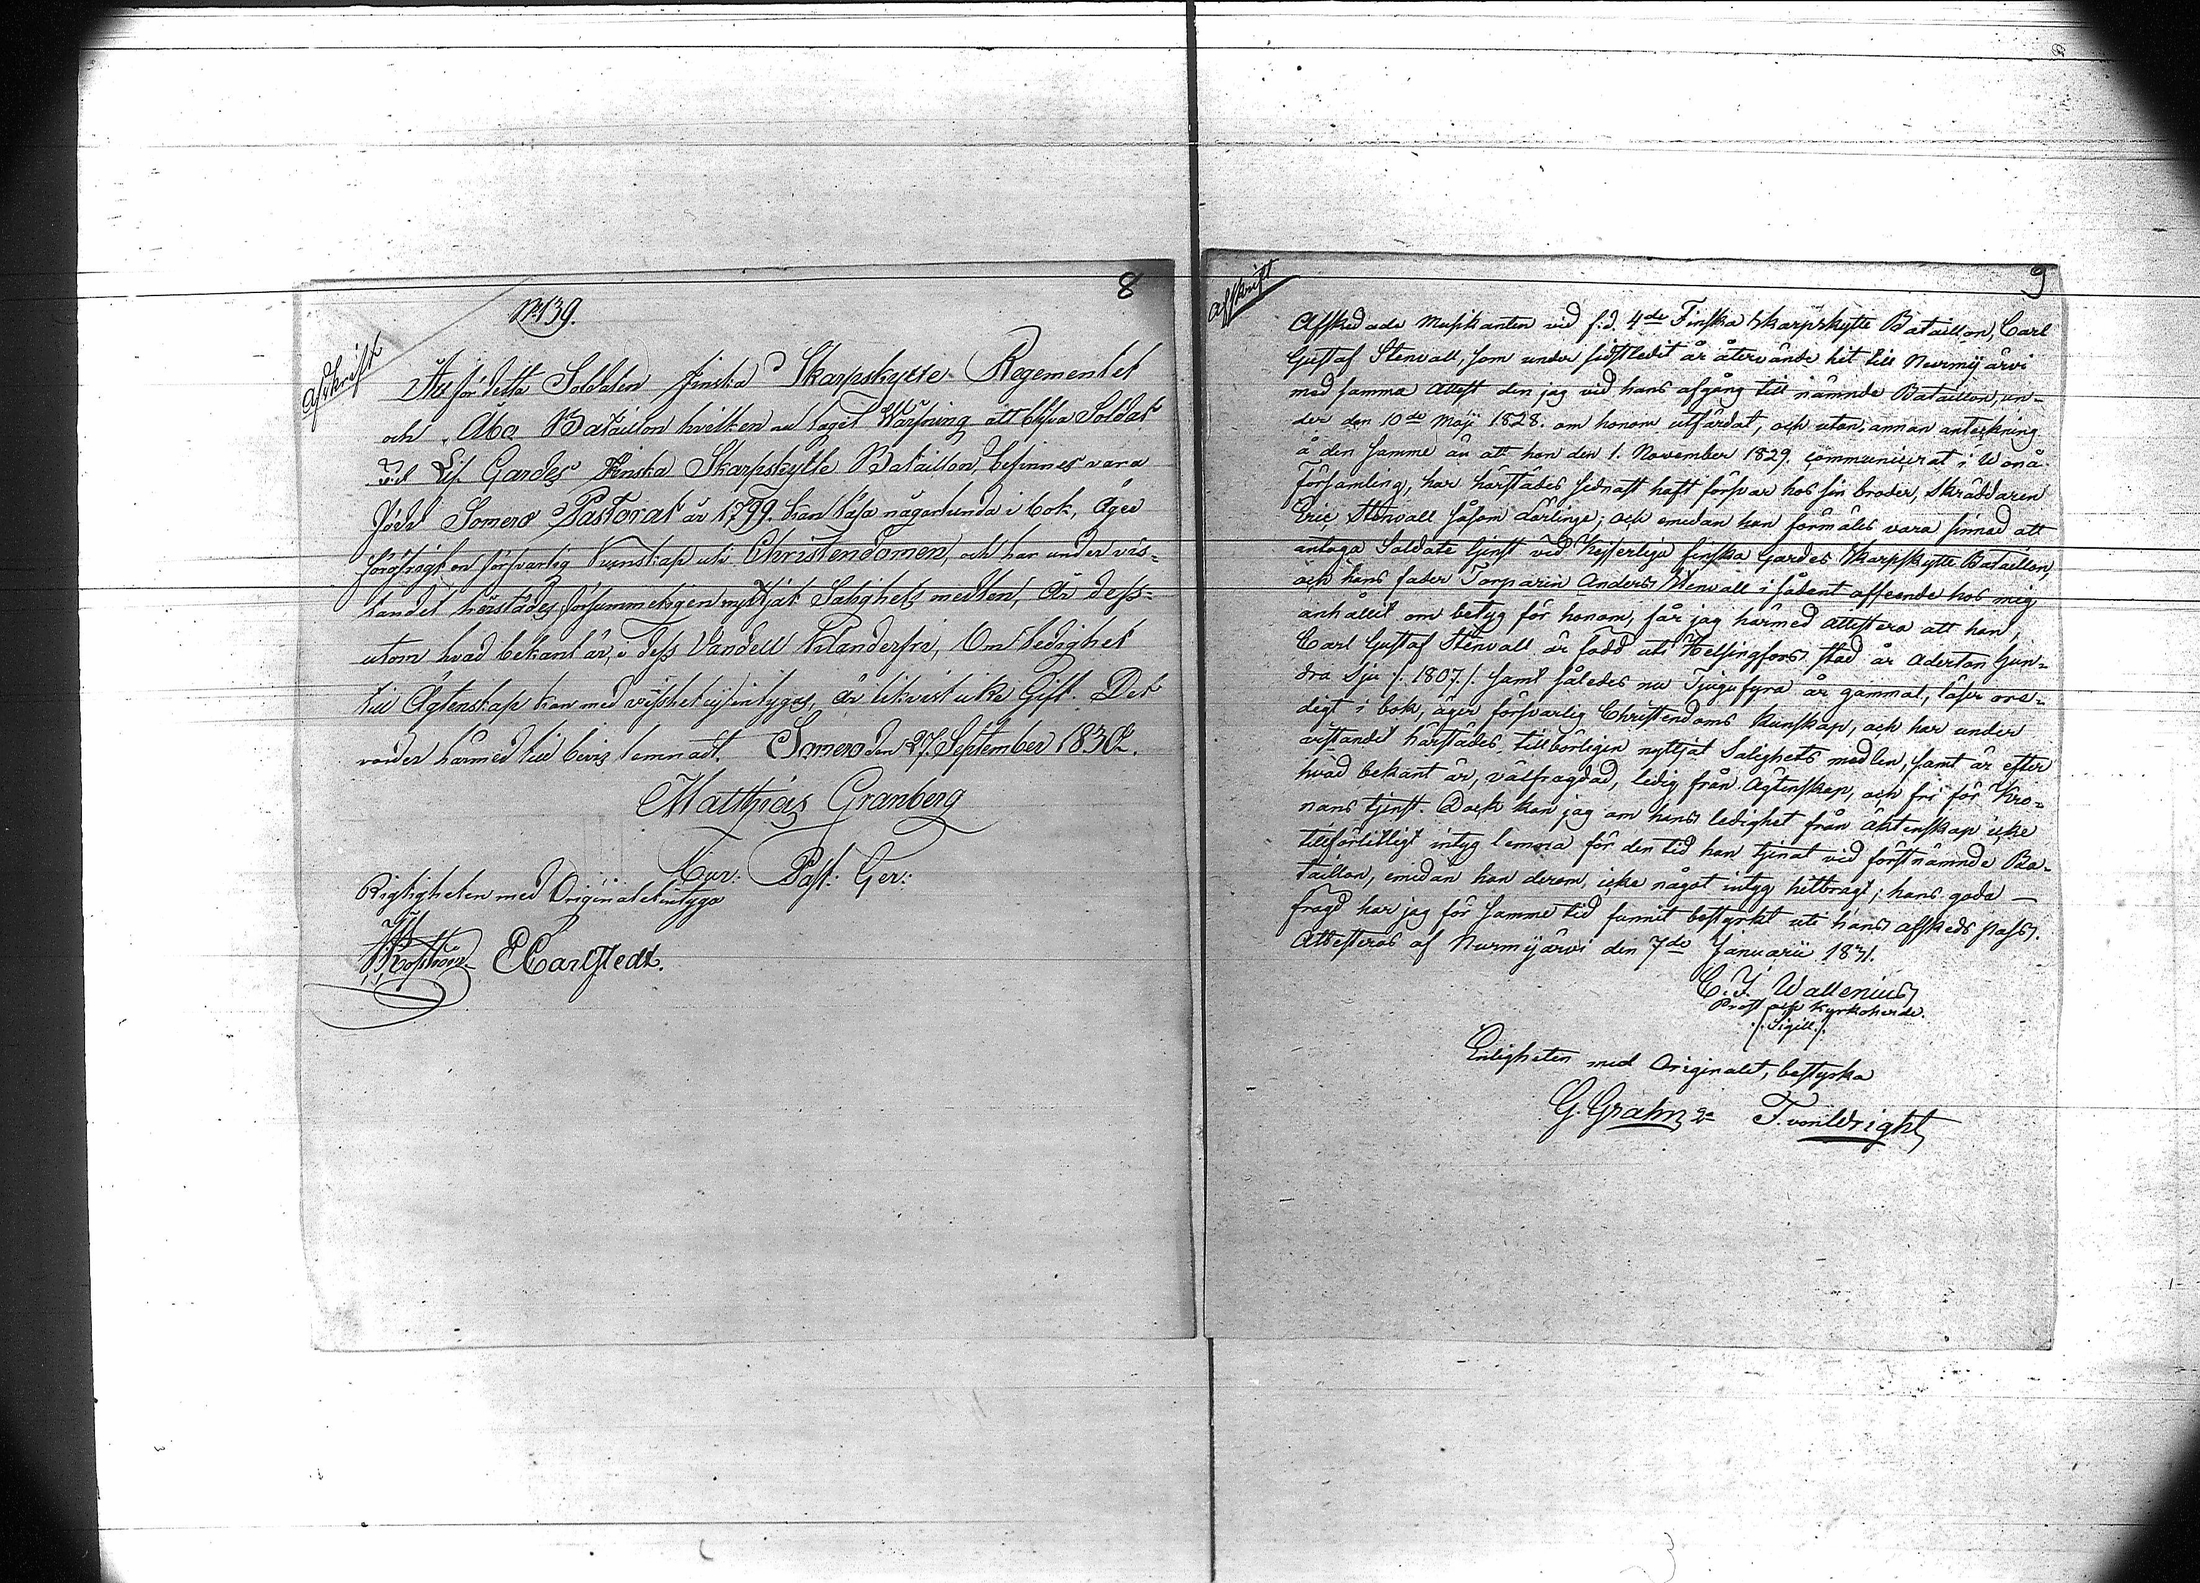 8
No 139.
Afskrift
At för detta Soldaten Finska Skarpskytte Regementet
och Åbo Bataillon hvilken nu tagit Wärfning att blifva Soldat
vid Lif Gardes Finska Skarpskytte Bataillon, befinnes vara
född Somero Pastorat år 1799. kan läsa någorlunda i bok, äger
försvarlig kunskap uti Christendomen, och har under vis-
tandet härstädes försummeligen nyttjat Salighets medlen, Är dess-
utom hvad bekant är, i dess Vandell Klanderfri, Om ledighet
till Ägtenskap kan med visshet ej intygas, är likväl icke Gift. Det
varder härmed till bevis lemnadt. Somero den 27 September 1830.
Matthias Granberg
Cur: Past: Ger:
Rigtigheten med Originalet intyga
E Carlstedt.
9
Afskrift
Afskedade Musikanten vid f.d. 4de Finska Skarpskytte Bataillon, Carl
Gustaf Stenvall, som under sidstledit år återvände hit till Nurmijärvi
med samma Attest den jag vid hans afgång till nämnde Bataillon, un-
der den 10de Maji 1828. om honom utfärdat, och utan annan anteckning
å den samme än att han den 1. November 1829. communicerat i Wånå
Församling, har härstädes sednast haft försvar hos sin broder, Skräddaren
Eric Stenvall såsom Lärlinge; och emedan han förmäles vara sinnad att
antaga Soldate tjenst vid Kejserliga finska Gardes Skarpskytte Bataillon,
och hans fader Torparen Anders Stenvall i sådent afseende hos mig
anhållit om betyg för honom, får jag härmed attestera att han,
Carl Gustaf Stenvall är född uti Helsingfors stad år Aderton hun-
dra sju /: 1807 :/ samt således nu Tjugufyra år gammal, läser ore-
digt i bok, äger försvarlig Christendoms kunskap, och har under
vistandet härstädes tillbörligen nyttjat Salighets medlen, samt är efter
hvad bekant är, välfrägdad, ledig från Ägtenskap, och fri för Kro-
nans tjenst. Dock kan jag om hans ledighet från äktenskap icke
tillförlitligt intyg lemna för den tid han tjenat vid förstnämnde Ba-
taillon, emedan han derom icke något intyg hitbragt; hans goda
frägd har jag för samme tid funnit bestyrkt uti hans afskeds pass.
Attesteras af Nurmijärvi den 7de Januarii 1831.
C. J. Wallenius
Prost och Kyrkoherde.
/: Sigill :/
Enligheten med Originalet, bestyrka
G. Grahn T. von Wright